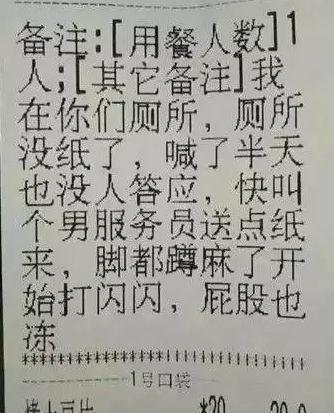 备注:[用餐人数]1
人;[其它备注]我
在你们厕所，厕所
没纸了，喊了半天
也没人答应，快叫
个男服务员送点纸
来，脚都蹲麻了开
始打闪闪，屁股也
冻
1号口袋